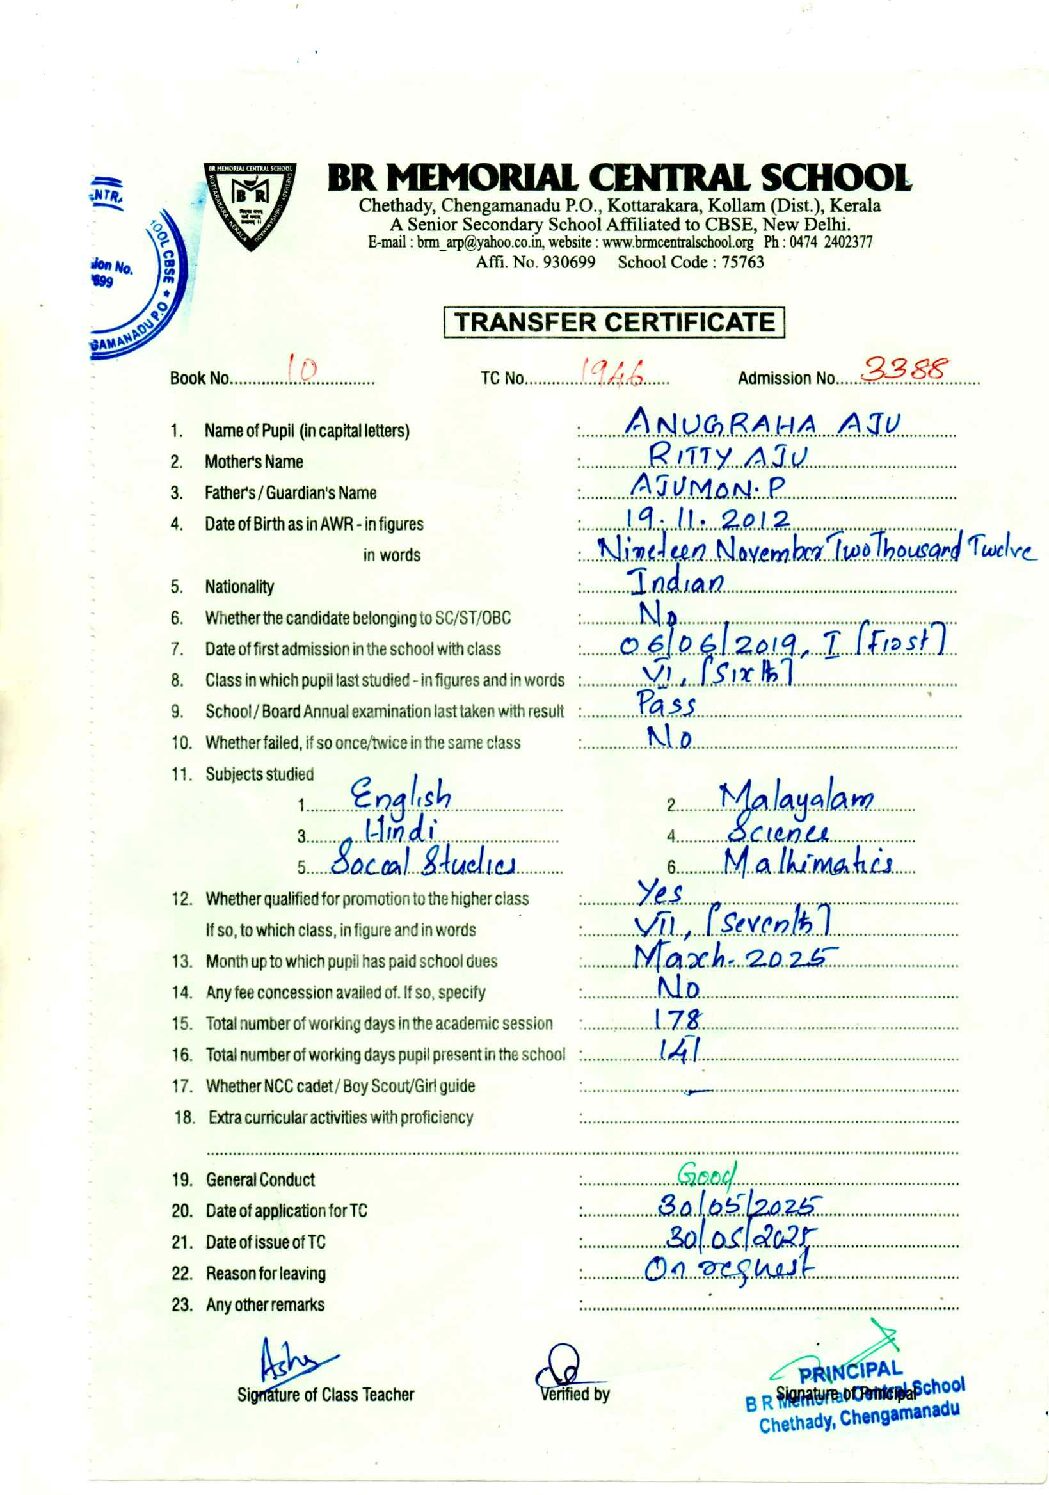 BR MEMORIAL CENTRAL SCHOOL
Chethady, Chengamanadu P.O., Kottarakara, Kollam (Dist.), Kerala
A Senior Secondary School Affiliated to CBSE, New Delhi.
E-mail : brm_arp@yahoo.co.in, website : www.brmcentralschool.org Ph : 0474 2402377
Affi. No. 930699 School Code : 75763
TRANSFER CERTIFICATE
Book No. 10 TC No. 1946 Admission No. 3388
1. Name of Pupil (in capital letters) : ANUGRAHA AJU
2. Mother's Name : RITTY AJU
3. Father's / Guardian's Name : AJUMON. P
4. Date of Birth as in AWR - in figures : 19. 11. 2012
in words : Nineteen November Two Thousand Twelve
5. Nationality : Indian
6. Whether the candidate belonging to SC/ST/OBC : No
7. Date of first admission in the school with class : 06/06/2019, I [First]
8. Class in which pupil last studied - in figures and in words : VI, [Sixth]
9. School / Board Annual examination last taken with result : Pass
10. Whether failed, if so once/twice in the same class : No
11. Subjects studied
1. English 2. Malayalam
3. Hindi 4. Science
5. Social Studies 6. Mathimatics
12. Whether qualified for promotion to the higher class : Yes
If so, to which class, in figure and in words : VII, [Seventh]
13. Month up to which pupil has paid school dues : March. 2025
14. Any fee concession availed of. If so, specify : No
15. Total number of working days in the academic session : 178
16. Total number of working days pupil present in the school : 141
17. Whether NCC cadet / Boy Scout/Girl guide : —
18. Extra curricular activities with proficiency :
19. General Conduct : Good
20. Date of application for TC : 30/05/2025
21. Date of issue of TC : 30/05/2025
22. Reason for leaving : On request
23. Any other remarks :
Signature of Class Teacher Verified by Signature of Principal
PRINCIPAL
B R Memorial Central School
Chethady, Chengamanadu